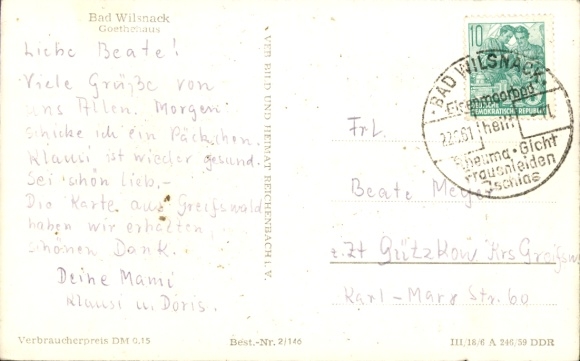 Bad Wilsnack
Goethehaus
Liebe Beate!
Viele Grüße von
uns Allen. Morgen
schicke ich ein Päckchen.
Klausi ist wieder gesund.
Sei schön lieb.-
Die Karte aus Greifswald
haben wir erhalten,
schönen Dank.
Deine Mami
Klausi u. Doris.
Verbraucherpreis DM 0.15
Best.-Nr. 2/146
VEB BILD UND HEIMAT REICHENBACH i. V.
10
DEUTSCHE DEMOKRATISCHE REPUBLIK
BAD WILSNACK
Eisenmoorbad
heilt
Rheuma · Gicht
Frauenleiden
Ischias
Frl.
Beate Meyer
z.Zt Gützkow Krs Greifsw
Karl-Marx Str. 60
III/18/6 A 246/59 DDR